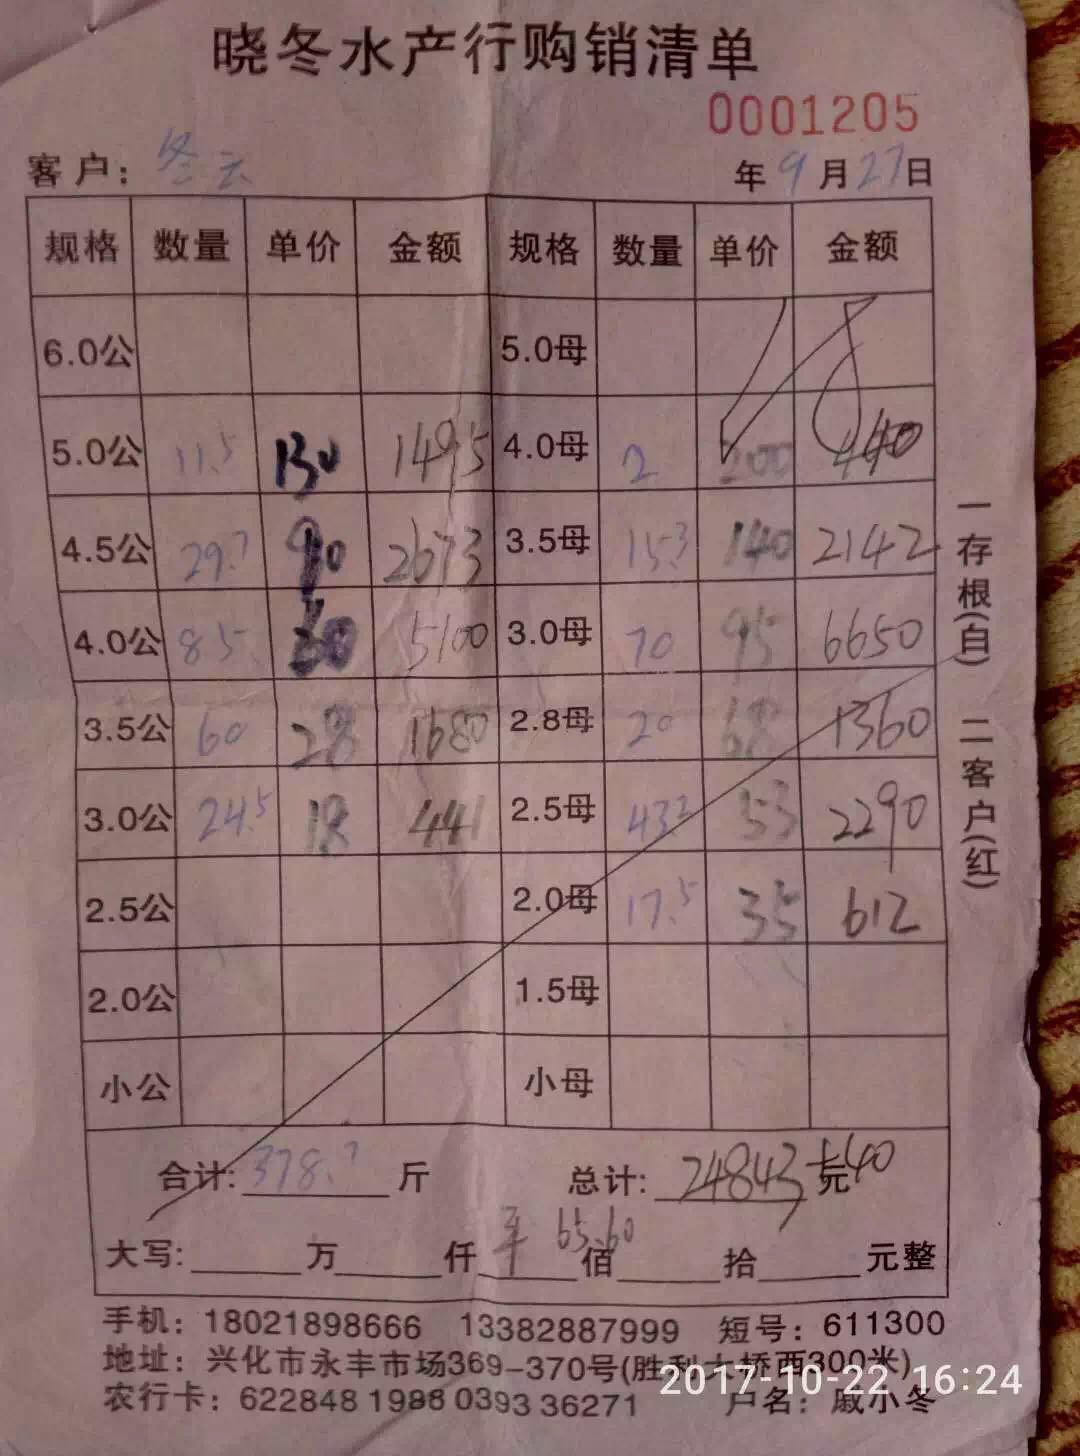 晓冬水产行购销清单
0001205
客户: 年9月27日
规格 数量 单价 金额 规格 数量 单价 金额
6.0公 5.0母
5.0公 11.5 130 1495 4.0母 2 200 440
4.5公 29.7 90 2673 3.5母 15.3 140 2142
4.0公 85 60 5100 3.0母 70 95 6650
3.5公 60 28 1680 2.8母 20 68 1360
3.0公 24.5 18 441 2.5母 43.2 53 2290
2.5公 2.0母 17.5 35 612
2.0公 1.5母
小公 小母
合计: 378.7 斤 总计: 24843 元 40
65.60
大写: 万 仟 佰 拾 元整
手机: 18021898666 13382887999 短号: 611300
地址: 兴化市永丰市场369-370号(胜利大桥西300米)
农行卡: 622848 1988 0393 36271 户名: 戚小冬
一存根(白) 二客户(红)
2017-10-22 16:24